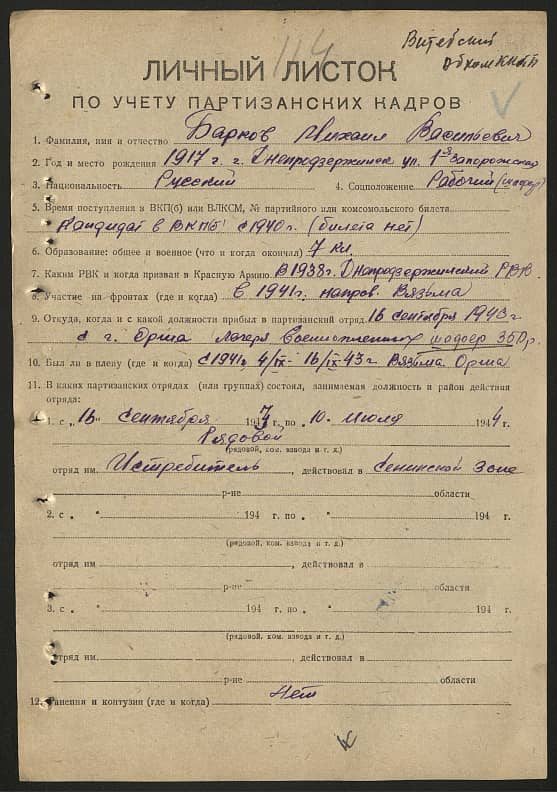 114
Витебский
Обком КП(б)Б
ЛИЧНЫЙ ЛИСТОК
ПО УЧЕТУ ПАРТИЗАНСКИХ КАДРОВ
1. Фамилия, имя и отчество Барков Михаил Васильевич
2. Год и место рождения 1917 г. г. Днепродзержинск ул. 1я Запорожская
3. Национальность Русский 4. Соцположение Рабочий (шофер)
5. Время поступления в ВКП(б) или ВЛКСМ, № партийного или комсомольского билета
Кандидат в ВКП(б) с 1940 г. (билета нет)
6. Образование: общее и военное (что и когда окончил) 7 кл.
7. Каким РВК и когда призван в Красную Армию В 1938 г. Днепродзержинский РВК.
8. Участие на фронтах (где и когда) в 1941 г. направ. Вязьма
9. Откуда, когда и с какой должности прибыл в партизанский отряд 16 сентября 1943 г
с г. Орша лагеря Военнопленных шофер
10. Был ли в плену (где и когда) с 1941 г. 4/IX - 16/IX-43 г Вязьма. Орша
11. В каких партизанских отрядах (или группах) состоял, занимаемая должность и район действия
отряда:
1. с „16 сентября 194 г. по „ 10 " июля 1944 г.
Рядовой
(рядовой, ком. взвода и т. д.)
отряд им. Истребитель, действовал в Сенинской зоне
р-не области
2. с „ " 194 г. по „ " 194 г.
(рядовой, ком. взвода и т. д.)
отряд им , действовал в
р-не области
3. с „ " 194 г. по „ " 194 г.
(рядовой, ком. взвода и т. д.)
отряд им. , действовал в
р-не области
12. Ранения и контузии (где и когда) Нет